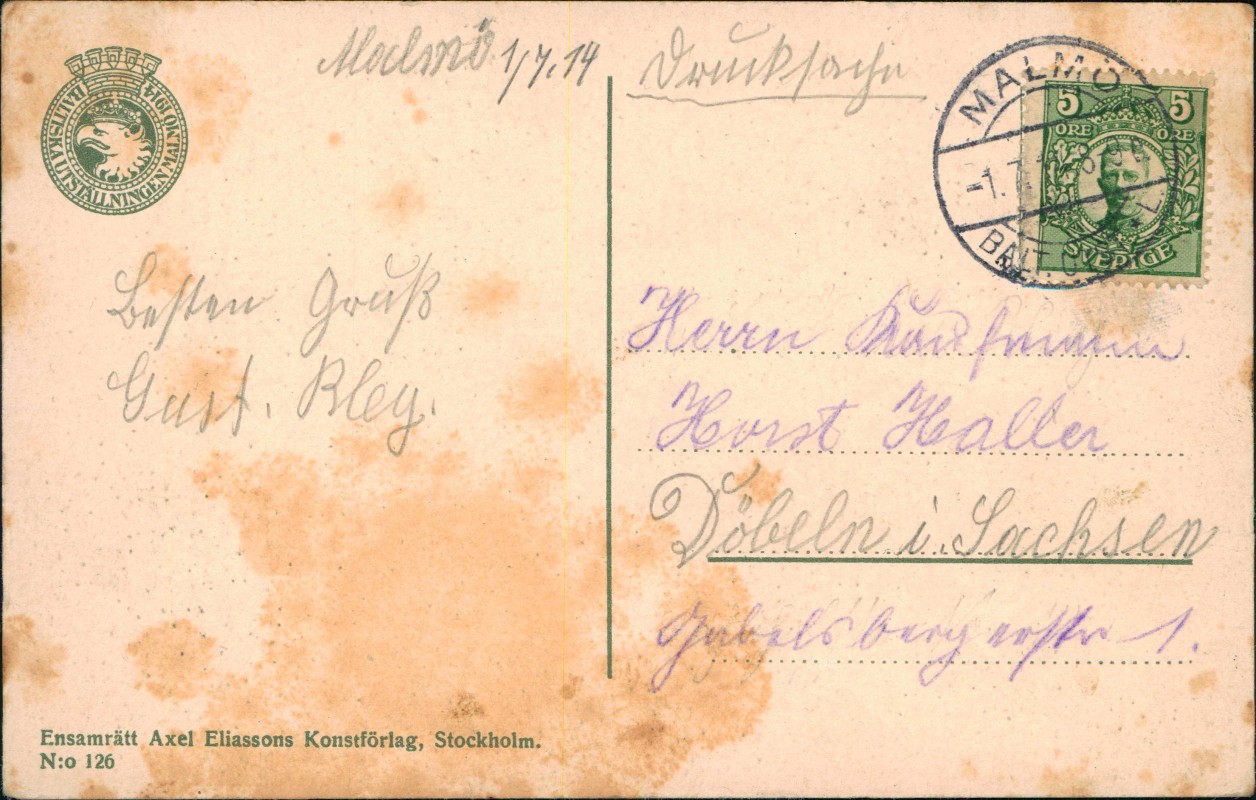 Malmö 1/7.14
Drucksache
BALTISKA UTSTÄLLNINGEN MALMÖ 1914
MALMÖ
BALT.
5 5
ÖRE ÖRE
SVERIGE
Besten Gruß
Gust.
Herrn Kaufmann
Horst Haller
Döbeln i. Sachsen
Gabelsbergerstr 1.
Ensamrätt Axel Eliassons Konstförlag, Stockholm.
N:o 126